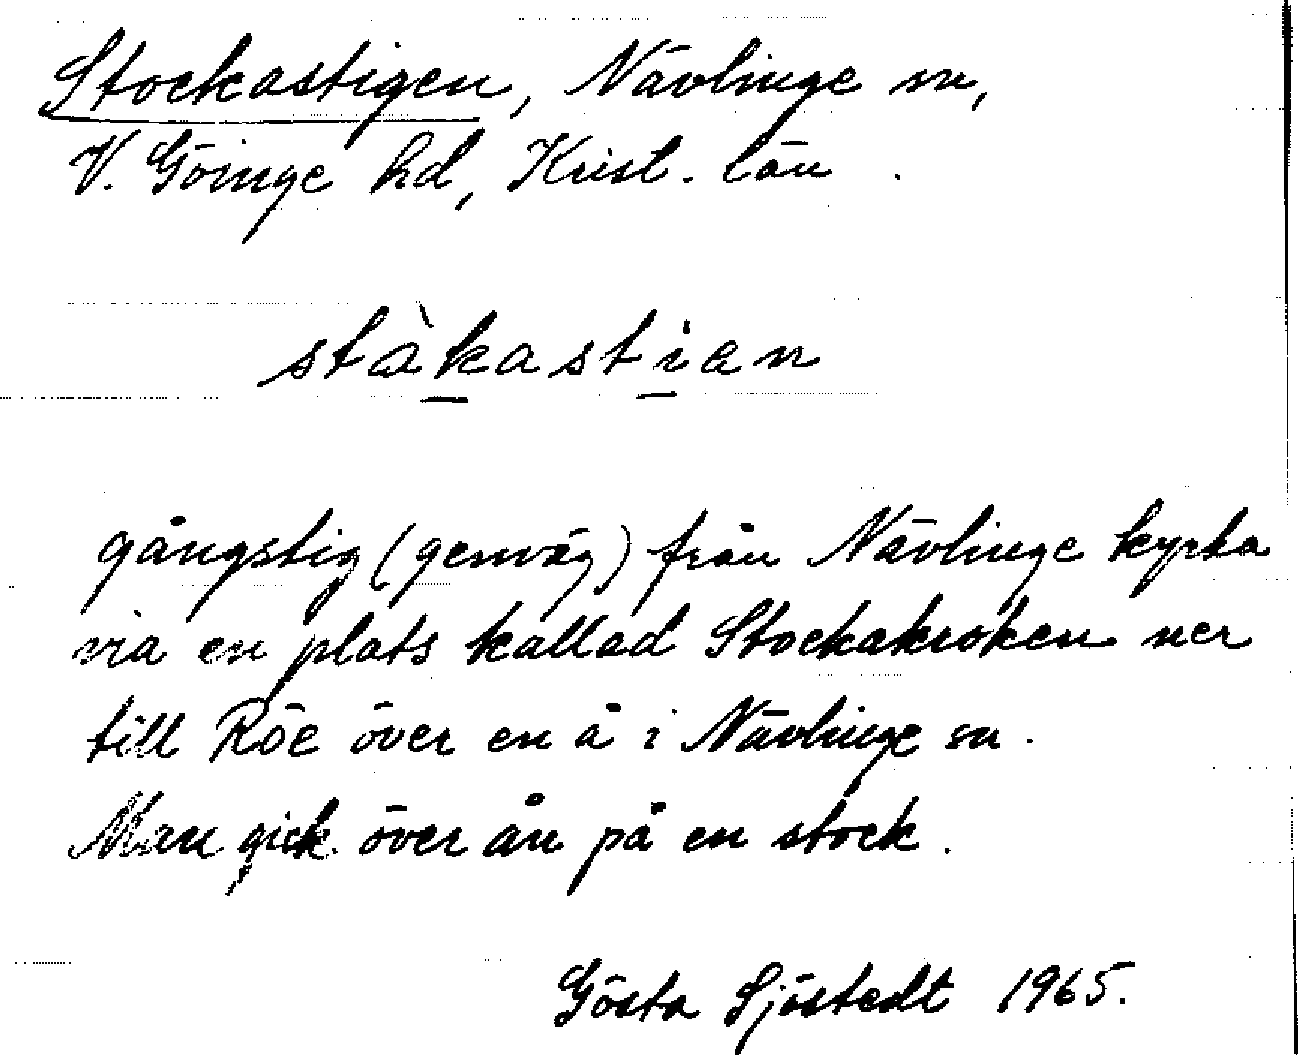 Stockastigen, Nävlinge sn,
V. Göinge hd, Krist. län.
stàkastian
gångstig (genväg) från Nävlinge kyrka
via en plats kallad Stockakroken ner
till Röe över en å i Nävlinge sn.
Man gick över ån på en stock.
Gösta Sjöstedt 1965.